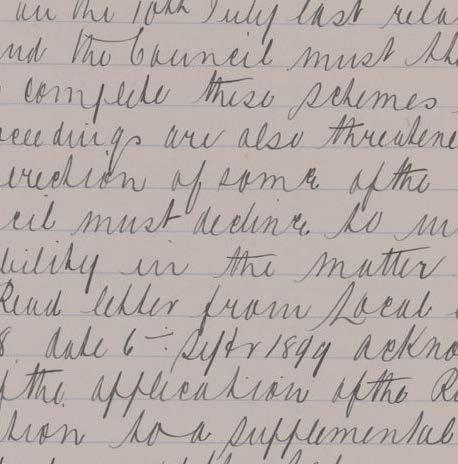 on the 10th July last rela
and the Council must the
complete these schemes
ceedings are also threatene
erection of some of the
cil must decline to in
bility in the matter
Read letter from Local
8 date 6th Septr 1899 ackno
f the application of the R
tion to a supplemental